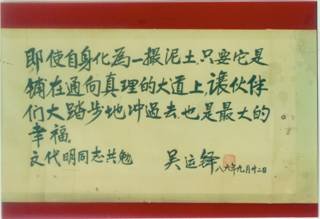 即使自身化為一撮泥土,只要它是
铺在通向真理的大道上,讓伙伴
们大踏步地冲过去,也是最大的
幸福。
文代明同志共勉
吴运铎
八六年九月廿二日